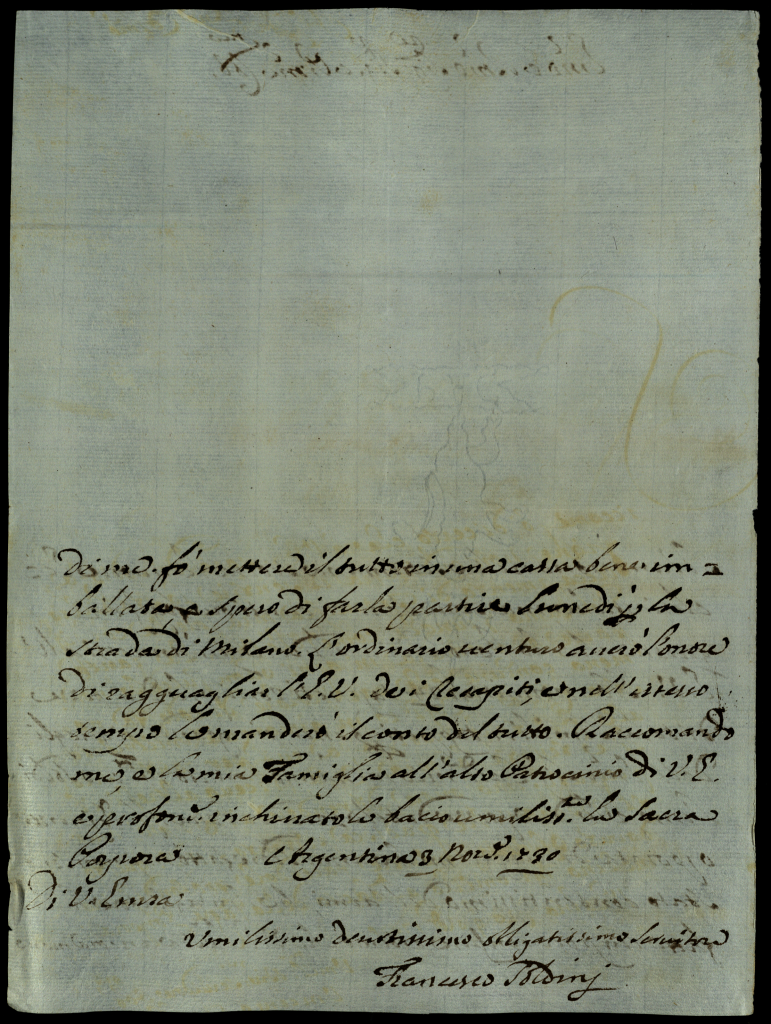 di me. fò mettere il tutto in una cassa bene im=
ballata, e spero di farla partire Lunedì p. la
strada di Milano. L'ordinario venturo averò l'onore
di ragguagliar l'E.V. dei Recapiti, e nell'istesso
tempo le manderò il conto del tutto. Raccomando
me, e la mia Famiglia all'alto Patrocinio di V.E.
e profond. inchinatole bacio umiliss.te la Sacra
Porpora Argentina 3 Nov. 1780
Di V. Emza
Umilissimo devotissimo obligatissimo Servitore
Francesco